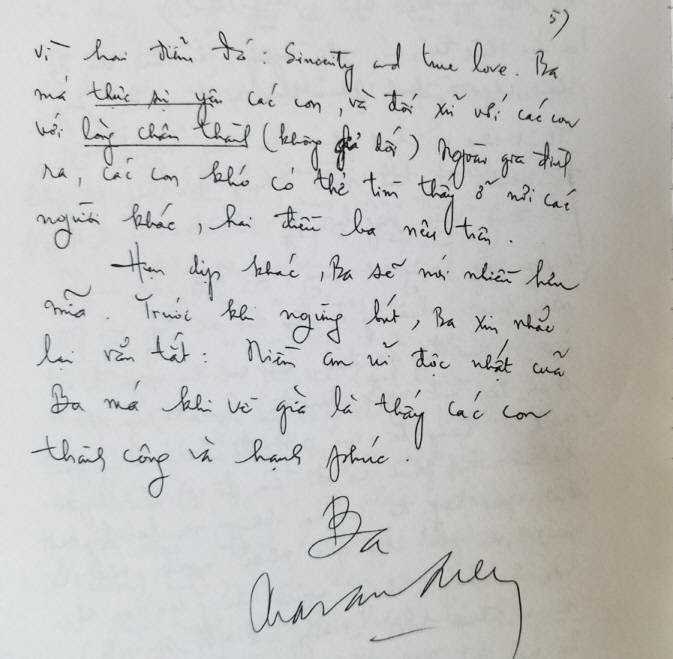 5)
vì hai điểm đó : Sincerity and true love. Ba
má thực sự yêu các con, và đối xử với các con
với lòng chân thành (không giả dối) Ngoài gia đình
ra, các con khó có thể tìm thấy ở nơi các
người khác, hai điều ba nêu trên.
Hẹn dịp khác, Ba sẽ nói nhiều hơn
nữa. Trước khi ngừng bút, Ba xin nhắc
lại vắn tắt : Niềm an ủi độc nhất của
Ba má khi về già là thấy các con
thành công và hạnh phúc.
Ba